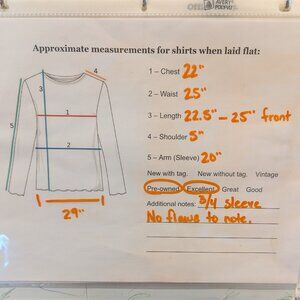 AVERY
Approximate measurements for shirts when laid flat:
1 – Chest 22"
2 – Waist 25"
3 – Length 22.5" – 25" front
4 – Shoulder 5"
5 – Arm (Sleeve) 20"
New with tag. New without tag. Vintage
Pre-owned Excellent Great Good
Additional notes: 3/4 sleeve
No flaws to note.
4
3
1
5
2
29"